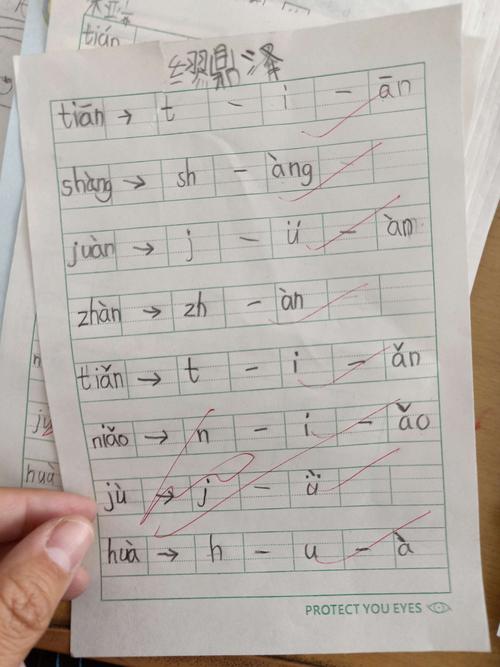 tián
tiān → t - i - ān
shàng → sh - àng
juàn → j - ü - àn
zhàn → zh - àn
tiǎn → t - i - ǎn
niǎo → n - i - ǎo
jù → j - ǜ
huà → h - u - à
huà
PROTECT YOU EYES